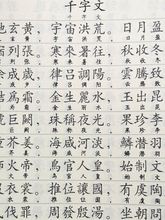 千字文
玄黃。宇宙洪荒。日月盈
列張。寒來暑往。秋收冬
成歲。律呂調陽。雲騰致
為霜。金生麗水。玉出崑
巨闕。珠稱夜光。果珍李
芥薑。海鹹河淡。鱗潛羽
火帝。鳥官人皇。始制文
衣裳。推位讓國。有虞陶
伐罪。周發殷湯。